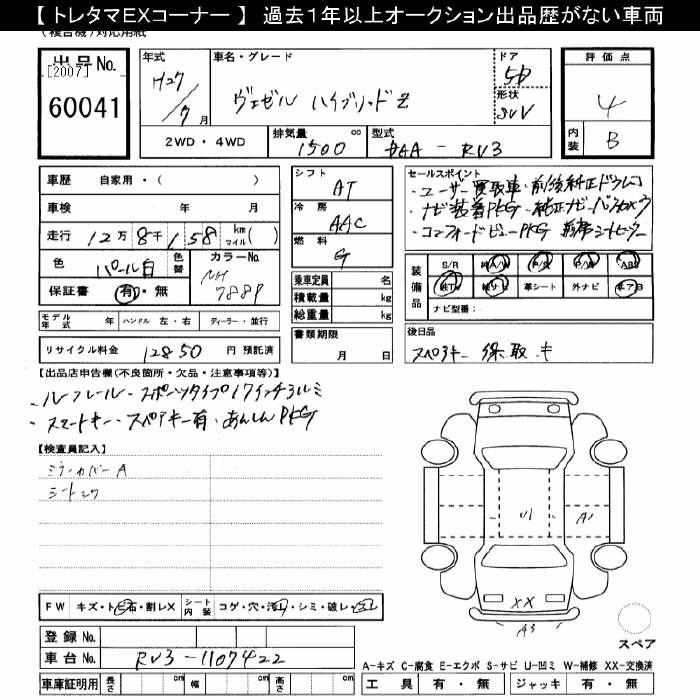 【 トレタマEXコーナー 】 過去１年以上オークション出品歴がない車両
出品No. [2007] 60041
年式 H27/7月
車名・グレード ヴェゼル ハイブリッド Z
ドア 5D
形状 SUV
評価点 4
内装 B
2WD・4WD
排気量 1500 cc
型式 DAA - RU3
車歴 自家用・( )
車検 年 月
走行 12万8千158 km( ) マイル( )
色 パール白 色替
カラーNo. NH 788P
保証書 有・無
シフト AT
冷房 AAC
燃料 G
乗車定員 名
積載量 kg
総重量 kg
セールスポイント
・ユーザー買取車・前後純正ドラレコ
・ナビ装着PKG・純正ナビ・バックカメラ
・コンフォートビューPKG 前席シートヒーター
装備品 S/R 純A/W P/S P/W ABS
純TV 純ナビ 革シート 外ナビ エアB
ナビ型番:
モデル年式 年 ハンドル 左・右 ディーラー・並行
リサイクル料金 12850 円 預託済
書類期限 月 日
後日品
スペアキー 保 取 キ
【出品店申告欄(不良箇所・欠品・注意事項等)】
・ルーフレール・スポーツタイプ17インチアルミ
・スマートキー・スペアキー有・あんしんPKG
【検査員記入】
ミラーカバーA
シートシワ
FW キズ・ト石・割レX シート内装 コゲ・穴・汚リ・シミ・破レ・
登録No.
車台No. RU3-1107422
車庫証明用 長さ cm 幅 cm 高さ cm
U1
A1
XX
A3
スペア
A-キズ C-腐食 E-エクボ S-サビ U-凹ミ W-補修 XX-交換済
工具 有・無 ジャッキ 有・無